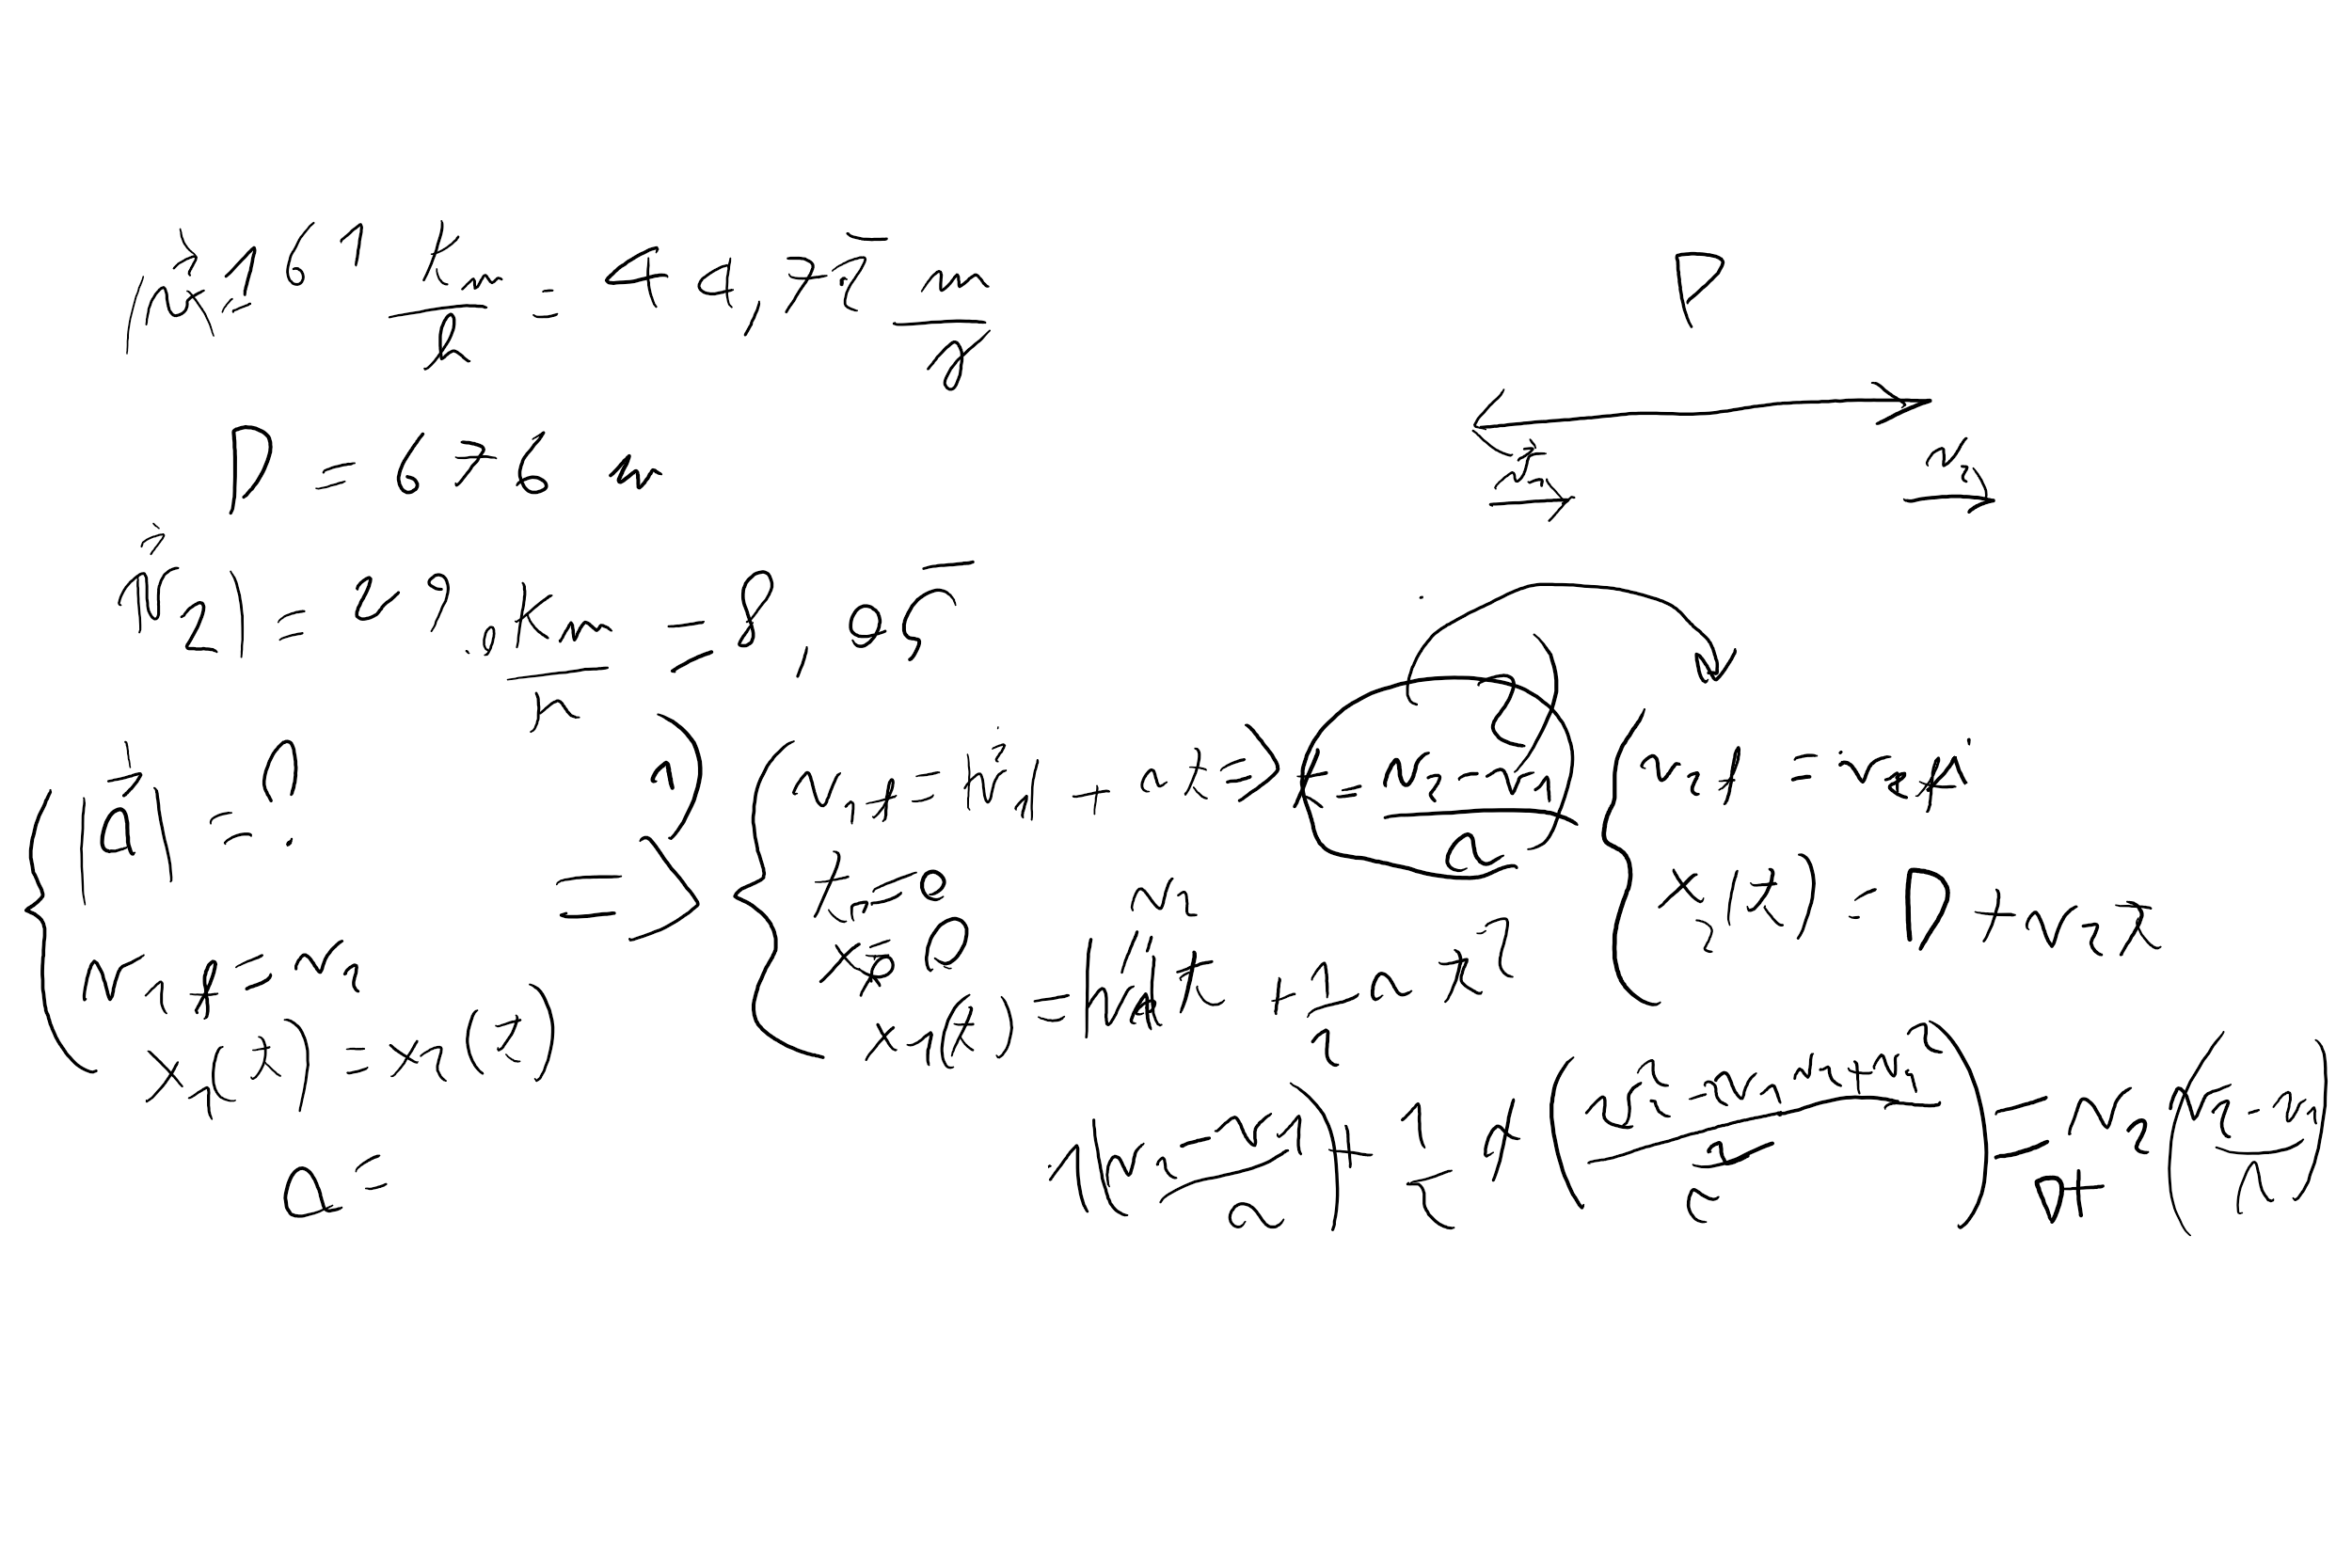 |v⃗₁| = 161 km/h = 44,72̅ m/s
D
D = 676 m
v⃗₁
v₂
|v⃗₂| = 29,0 km/h = 8,05̅
|a⃗| = ?
v₁f = v₂
x₁(t) = x₂(t)
⇒ 1)
v₁f = |v⃗₁| + at ⇒ t = (v₂ - v₁)/a
2)
t₁ = 0
x₀ = 0
x₁(t) = v₁t + 1/2 a t²
v₂f = v₂
x₂(t) = D + v₂t
v₁((v₂ - v₁)/a) + 1/2 a ((v₂² - 2v₂v₁ + v₁²)/a²) = D + v₂((v₂ - v₁)/a)
a =